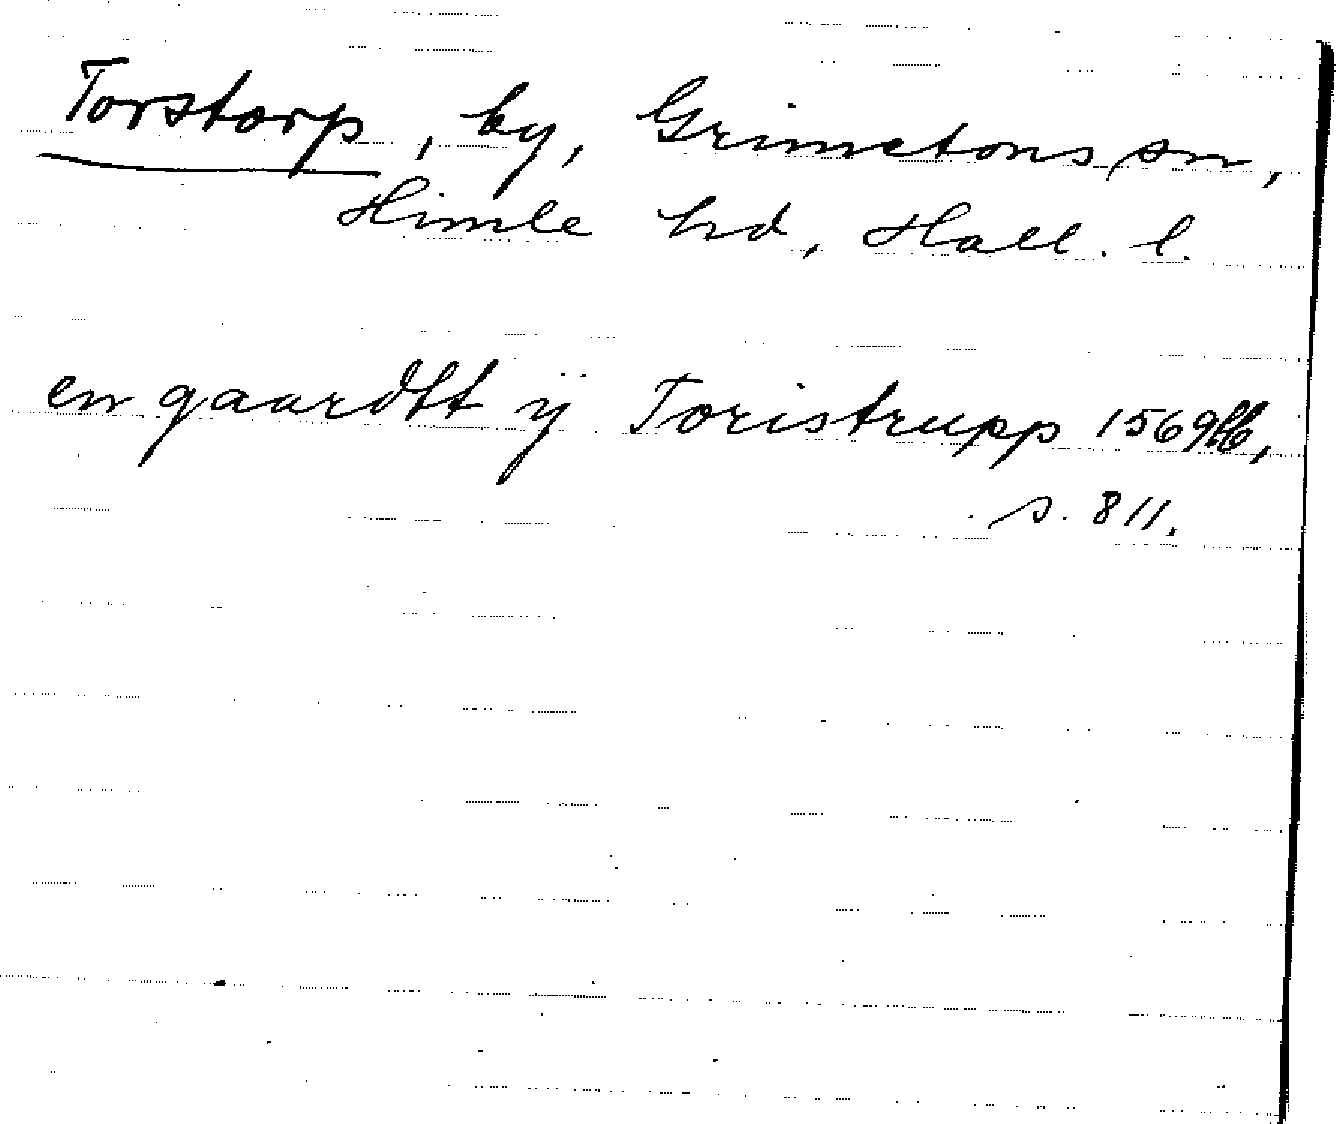 Torstorp, by, Grimetons sn,
Himle hd, Hall. l.
en gaardtt ÿ Toristrupp 1569 lb,
s. 811.